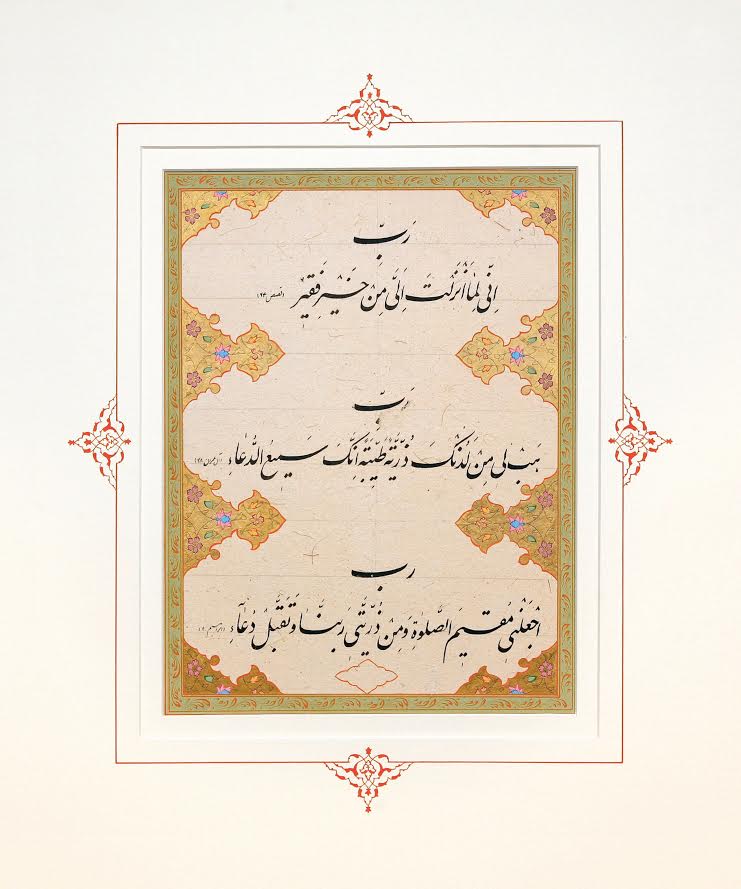 رَبّ
اِنّی لِمٰا اَنْزَلْتَ اِلَیَّ مِنْ خَیْرٍ فَقیرٌ قصص ۲۴
رَبّ
هَبْ لی مِنْ لَدُنْکَ ذُرّیَّةً طَیِّبَةً اِنَّکَ سَمیعُ الدُّعاءِ آل عمران ۳۸
رب
اجْعَلْنی مُقیمَ الصَّلوٰةِ وَمِنْ ذُرّیَّتی رَبَّنا وَتَقَبَّلْ دُعآءِ